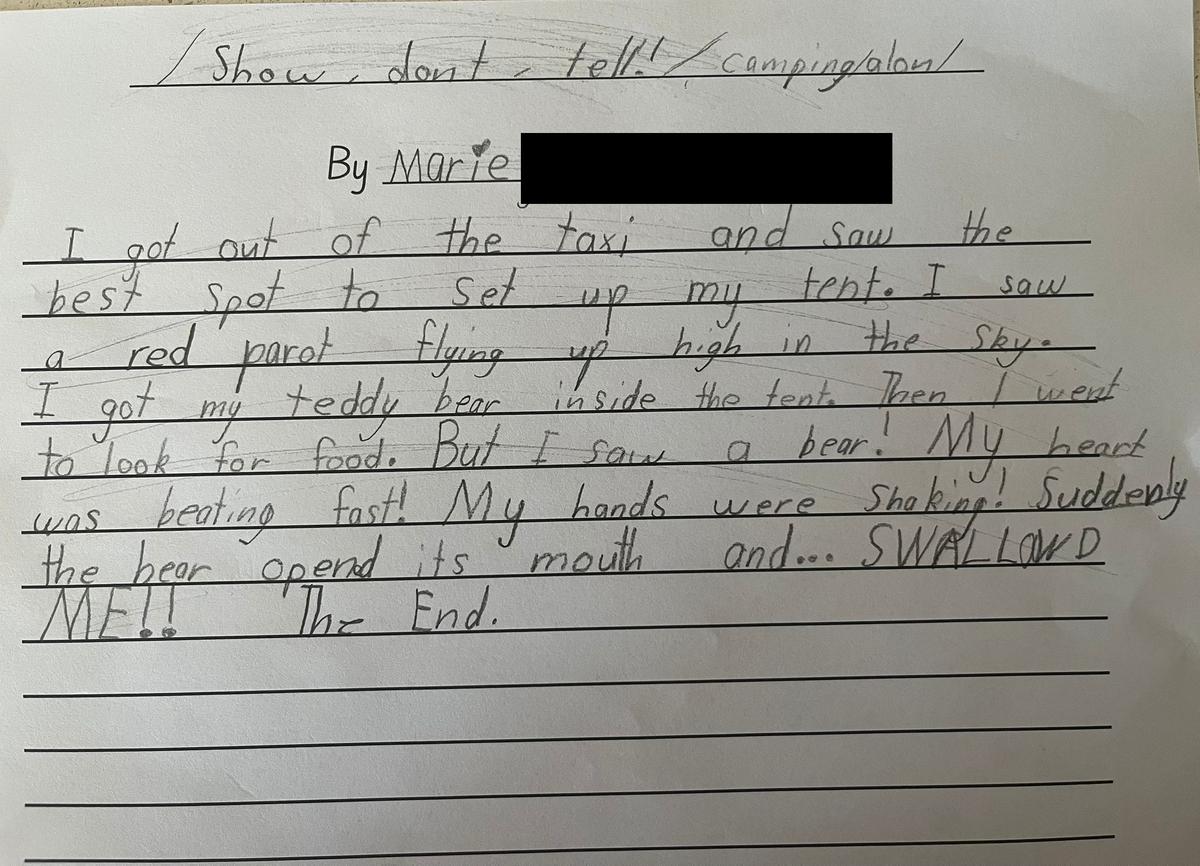 /Show, dont, tell!/ camping/alon/
By Marie
I got out of the taxi and saw the
best spot to set up my tent. I saw
a red parot flying up high in the sky.
I got my teddy bear inside the tent. Then I went
to look for food. But I saw a bear! My heart
was beating fast! My hands were shaking! Suddenly
the bear opend its mouth and... SWALLOWD
ME!! The End.